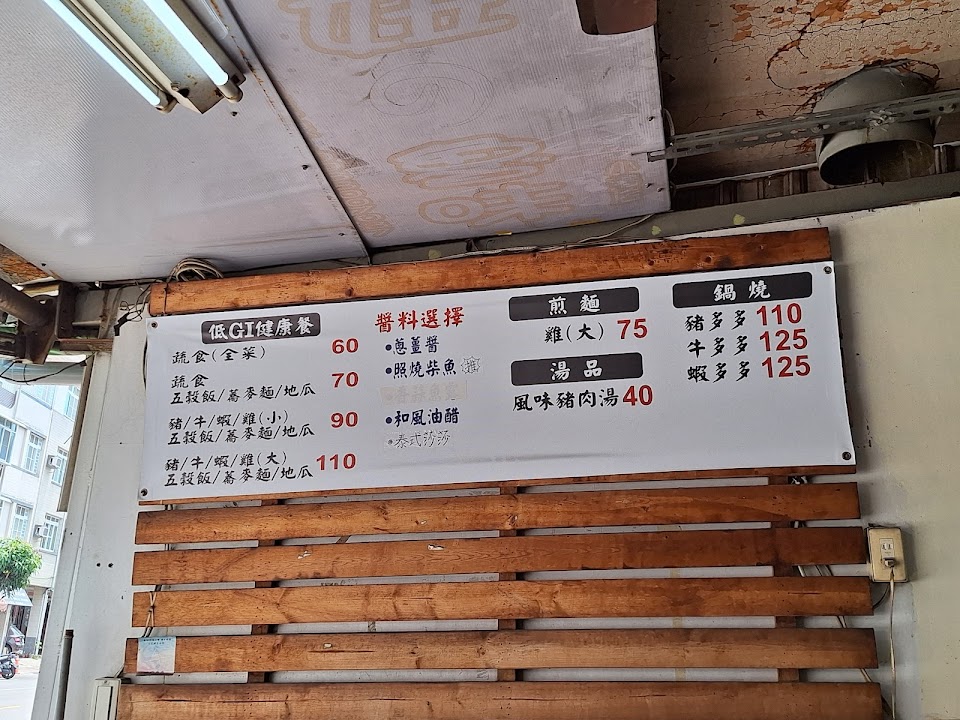 低GI健康餐
蔬食(全菜) 60
蔬食 70
五穀飯/蕎麥麵/地瓜
豬/牛/蝦/雞(小) 90
五穀飯/蕎麥麵/地瓜
豬/牛/蝦/雞(大) 110
五穀飯/蕎麥麵/地瓜
醬料選擇
•蔥薑醬
•照燒柴魚
•和風油醋
•泰式莎莎
煎麵
雞(大) 75
湯品
風味豬肉湯 40
鍋燒
豬多多 110
牛多多 125
蝦多多 125